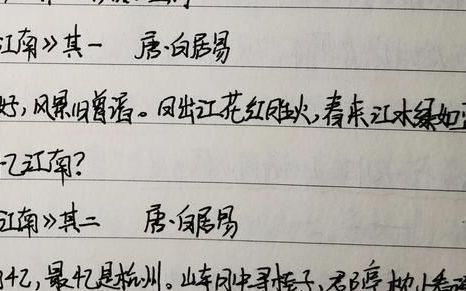 江南》其一 唐·白居易
好,风景旧曾谙。日出江花红胜火,春来江水绿如
忆江南?
江南》其二 唐·白居易
忆,最忆是杭州。山寺月中寻桂子,郡亭枕上看